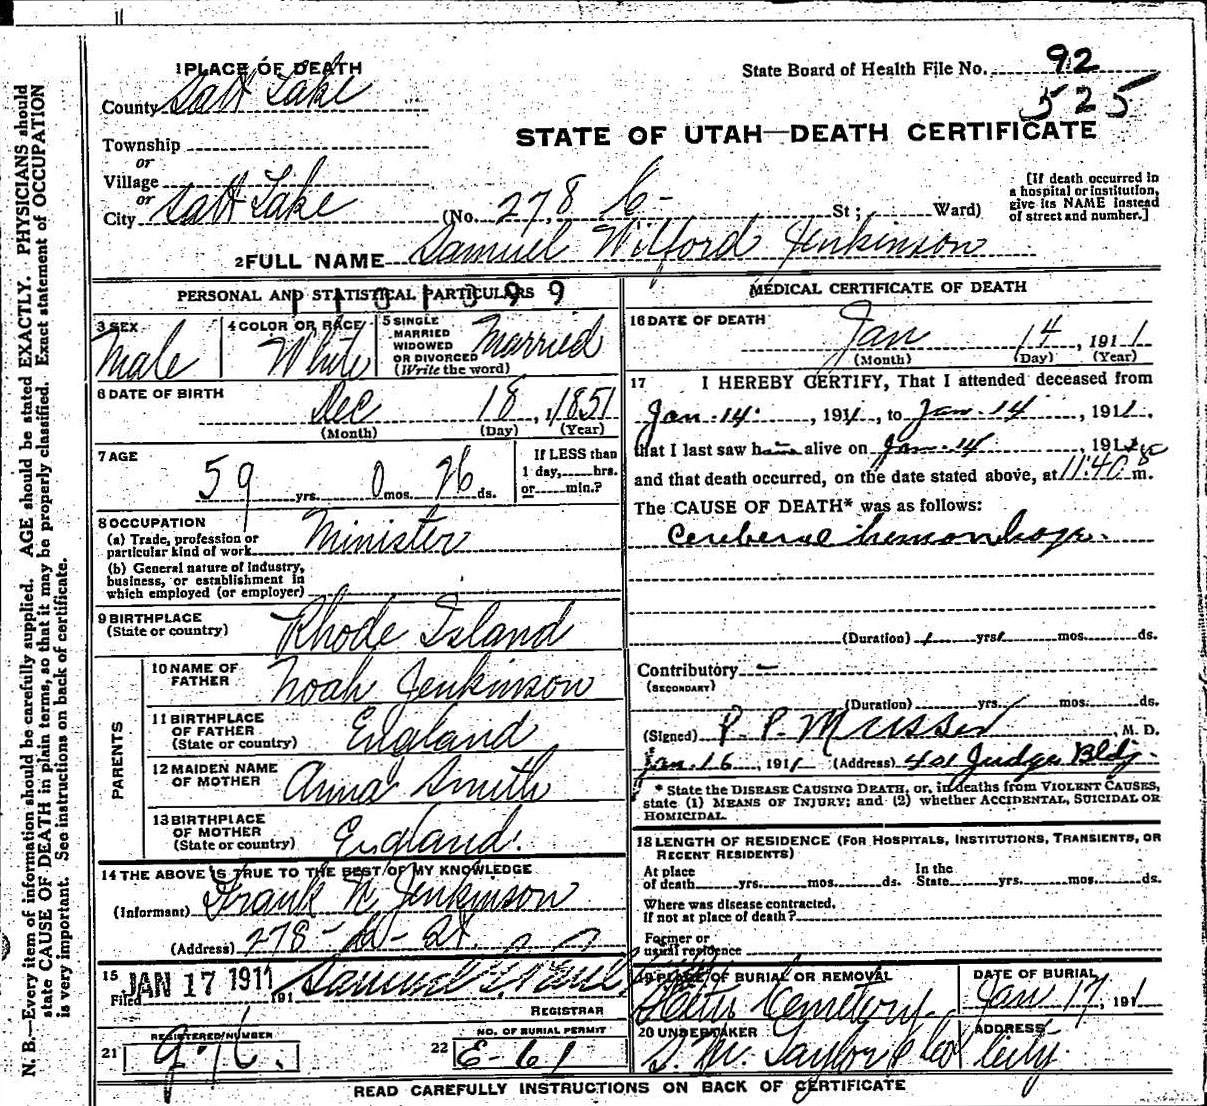 1 PLACE OF DEATH
County Salt Lake
Township
or
Village
or
City Salt Lake (No. 278 St; Ward)
State Board of Health File No. 92
525
STATE OF UTAH—DEATH CERTIFICATE
[If death occurred in
a hospital or institution,
give its NAME instead
of street and number.]
2 FULL NAME Samuel Wilford Jenkinson
PERSONAL AND STATISTICAL PARTICULARS
3 SEX Male
4 COLOR OR RACE White
5 SINGLE
MARRIED
WIDOWED
OR DIVORCED
(Write the word) Married
6 DATE OF BIRTH Dec 18, 1851
(Month) (Day) (Year)
7 AGE
59 yrs. 0 mos. 26 ds.
If LESS than
1 day, hrs.
or min.?
8 OCCUPATION
(a) Trade, profession or
particular kind of work Minister
(b) General nature of industry,
business, or establishment in
which employed (or employer)
9 BIRTHPLACE
(State or country) Rhode Island
PARENTS
10 NAME OF
FATHER Noah Jenkinson
11 BIRTHPLACE
OF FATHER
(State or country) England
12 MAIDEN NAME
OF MOTHER Anna Smith
13 BIRTHPLACE
OF MOTHER
(State or country) England.
14 THE ABOVE IS TRUE TO THE BEST OF MY KNOWLEDGE
(Informant) Frank N. Jenkinson
(Address) 278-
15
Filed JAN 17 1911 191 Samuel G. Paul
REGISTRAR
REGISTERED NUMBER
21
NO. OF BURIAL PERMIT
22 E-61
MEDICAL CERTIFICATE OF DEATH
16 DATE OF DEATH
Jan 14, 1911
(Month) (Day) (Year)
17 I HEREBY CERTIFY, That I attended deceased from
Jan. 14, 1911, to Jan. 14, 1911,
that I last saw him alive on Jan. 14 1911
and that death occurred, on the date stated above, at 11:40 m.
The CAUSE OF DEATH* was as follows:
Cerebral hemorrhage.
(Duration) yrs. mos. ds.
Contributory
(SECONDARY)
(Duration) yrs. mos. ds.
(Signed) P. P. Musser, M. D.
Jan. 16, 1911 (Address) 401 Judge Bldg.
* State the DISEASE CAUSING DEATH, or, in deaths from VIOLENT CAUSES,
state (1) MEANS OF INJURY; and (2) whether ACCIDENTAL, SUICIDAL OR
HOMICIDAL.
18 LENGTH OF RESIDENCE (FOR HOSPITALS, INSTITUTIONS, TRANSIENTS, OR
RECENT RESIDENTS)
At place
of death yrs. mos. ds.
In the
State yrs. mos. ds.
Where was disease contracted,
If not at place of death?
Former or
usual residence
19 PLACE OF BURIAL OR REMOVAL
Cemetery
DATE OF BURIAL
Jan 17, 191 1
20 UNDERTAKER
S. M. Taylor & Co
ADDRESS
City.
READ CAREFULLY INSTRUCTIONS ON BACK OF CERTIFICATE
N. B.—Every item of information should be carefully supplied. AGE should be stated EXACTLY. PHYSICIANS should
state CAUSE OF DEATH in plain terms, so that it may be properly classified. Exact statement of OCCUPATION
is very important. See instructions on back of certificate.